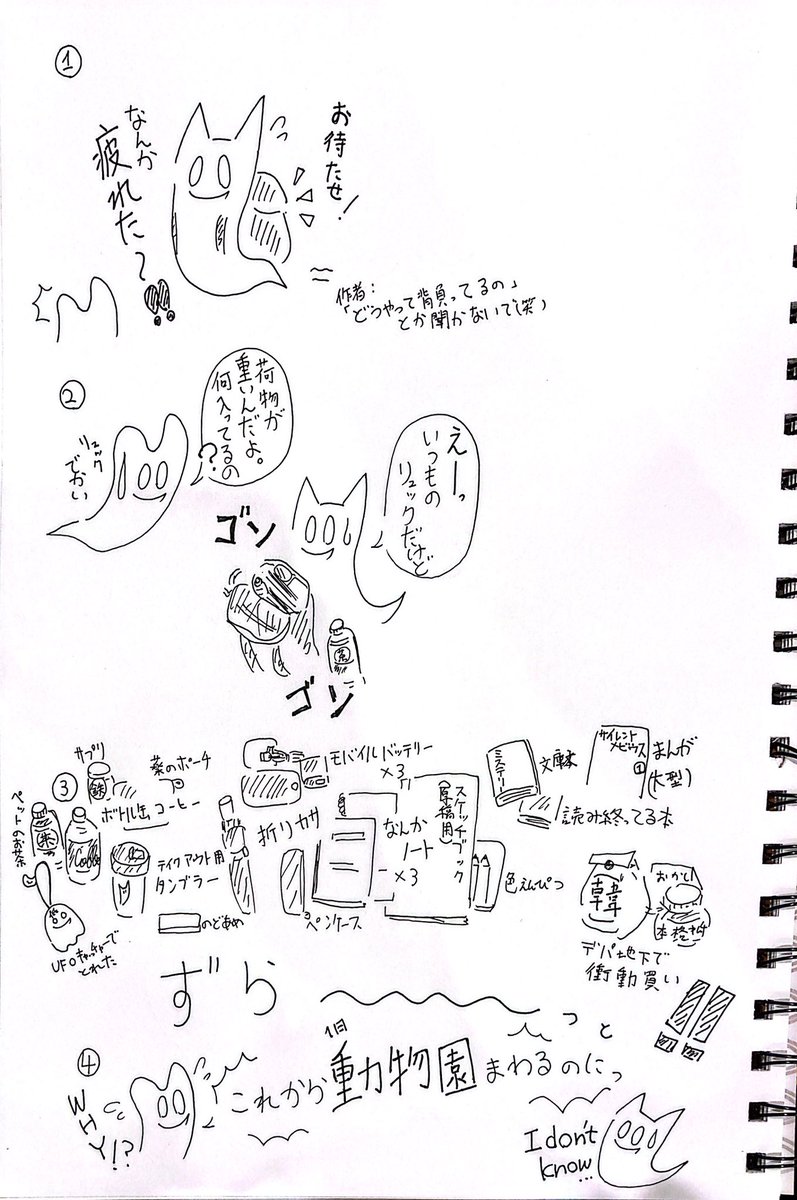 ①
お待たせ！
なんか
疲れた？
作者：
「どうやって背負ってるの」
とか聞かないで(笑)
②
荷物が
重いんだよ。
何入ってるの
？
リュック
でかい
えーっ
いつもの
リュックだけど
ゴソ
茶
ゴソ
③
サプリ
鉄
薬のポーチ
モバイルバッテリー
×3
ミステリー
文庫本
サイレント
メビウス
①
まんが
(大型)
読み終ってる本
ペットのお茶
ボトル缶コーヒー
テイクアウト用
タンブラー
折りカサ
なんか
ノート
×3
スケッチブック
(原稿用)
色えんぴつ
のどあめ
ペンケース
UFOキャッチャーで
とれた
韓
デパ地下で
衝動買い
ずら～っと
④
WHY!?
これから
1日
動物園
まわるのにっ
I don't
know...